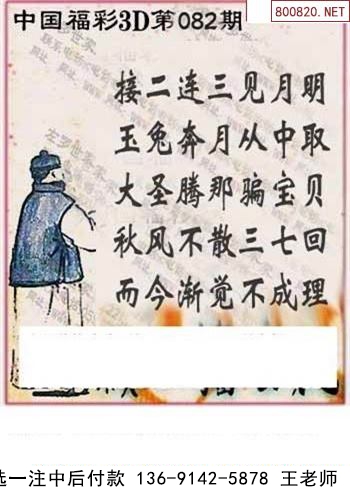 中国福彩3D第082期
800820.NET
接二连三见月明
玉兔奔月从中取
大圣腾那骗宝贝
秋风不散三七回
而今渐觉不成理
选一注中后付款 136-9142-5878 王老师